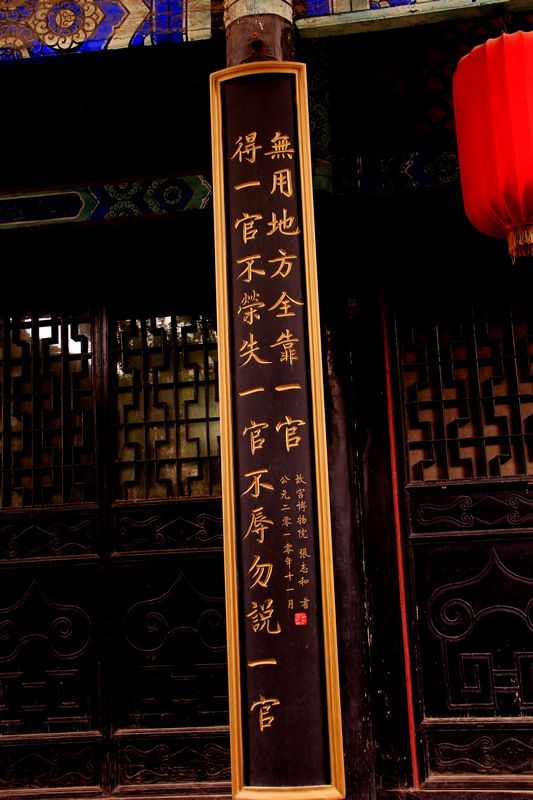 得一官不榮失一官不辱勿說一官
無用地方全靠一官
公元二零一零年十一月
故宮博物院 張志和 書